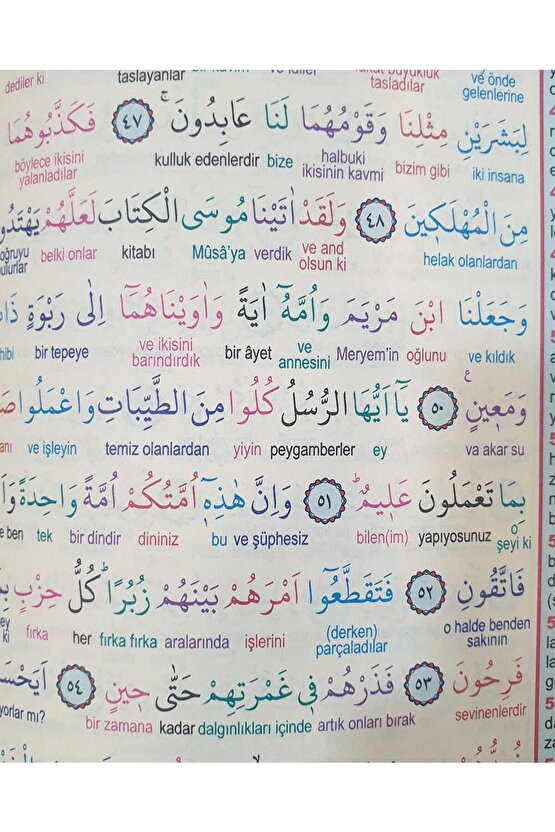 dediler ki taslayanlar tasladılar ve önde gelenlerine
لِبَشَرَيْنِ مِثْلِنَا وَقَوْمُهُمَا لَنَا عَابِدُونَۚ ﴿٤٧﴾ فَكَذَّبُوهُمَا
iki insana bizim gibi halbuki ikisinin kavmi bize kulluk edenlerdir böylece ikisini yalanladılar
مِنَ الْمُهْلَك۪ينَ ﴿٤٨﴾ وَلَقَدْ اٰتَيْنَا مُوسَى الْكِتَابَ لَعَلَّهُمْ
helak olanlardan ve and olsun ki verdik Mûsâ'ya kitabı belki onlar
وَجَعَلْنَا ابْنَ مَرْيَمَ وَاُمَّهُٓ اٰيَةً وَاٰوَيْنَاهُمَٓا اِلٰى رَبْوَةٍ
ve kıldık oğlunu Meryem'in ve annesini bir âyet ve ikisini barındırdık bir tepeye
وَمَع۪ينٍ۟ ﴿٥٠﴾ يَٓا اَيُّهَا الرُّسُلُ كُلُوا مِنَ الطَّيِّبَاتِ وَاعْمَلُوا
va akar su ey peygamberler yiyin temiz olanlardan ve işleyin
بِمَا تَعْمَلُونَ عَل۪يمٌۜ ﴿٥١﴾ وَاِنَّ هٰذِه۪ٓ اُمَّتُكُمْ اُمَّةً وَاحِدَةً
o şeyi ki yapıyosunuz bilen(im) ve şüphesiz bu dininiz bir dindir tek e ben
فَاتَّقُونِ ﴿٥٢﴾ فَتَقَطَّعُٓوا اَمْرَهُمْ بَيْنَهُمْ زُبُرًاۜ كُلُّ حِزْبٍ
o halde benden sakının (derken) parçaladılar işlerini aralarında fırka fırka her fırka
فَرِحُونَ ﴿٥٣﴾ فَذَرْهُمْ ف۪ي غَمْرَتِهِمْ حَتّٰى ح۪ينٍ ﴿٥٤﴾
sevinenlerdir artık onları bırak dalgınlıkları içinde kadar bir zamana yorlar mı?